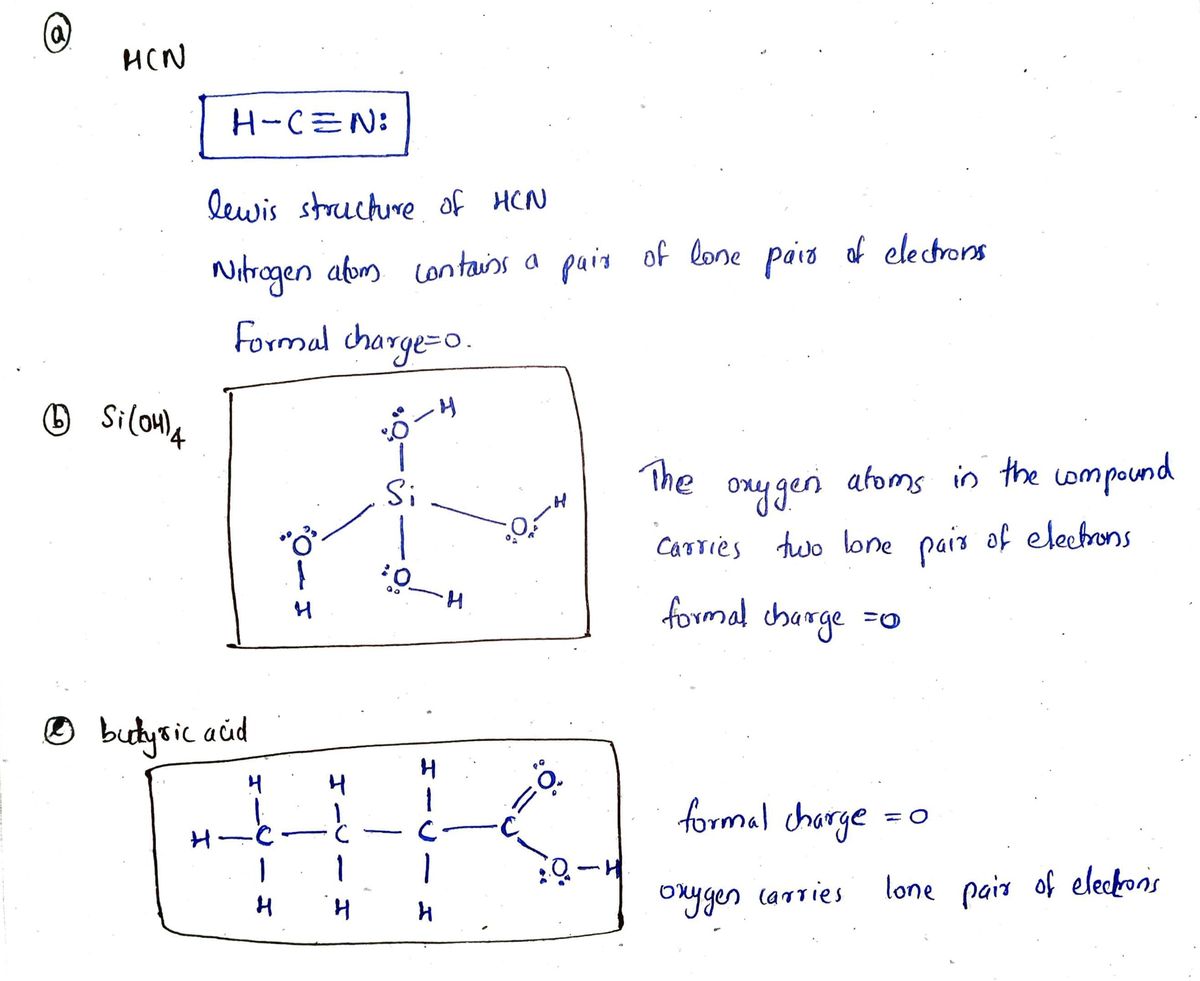 ⓐ
HCN
H-C≡N:
lewis structure of HCN
Nitrogen atom contains a pair of lone pair of electrons
Formal charge=0.
ⓑ Si(OH)4
H
:Ö
Si
Ö: H
:Ö
H
:Ö
H
The oxygen atoms in the compound
carries two lone pair of electrons
formal charge =0
ⓒ butyric acid
H H H Ö:
H-C-C-C-C
:Ö-H
H H H
formal charge =0
oxygen carries lone pair of electrons